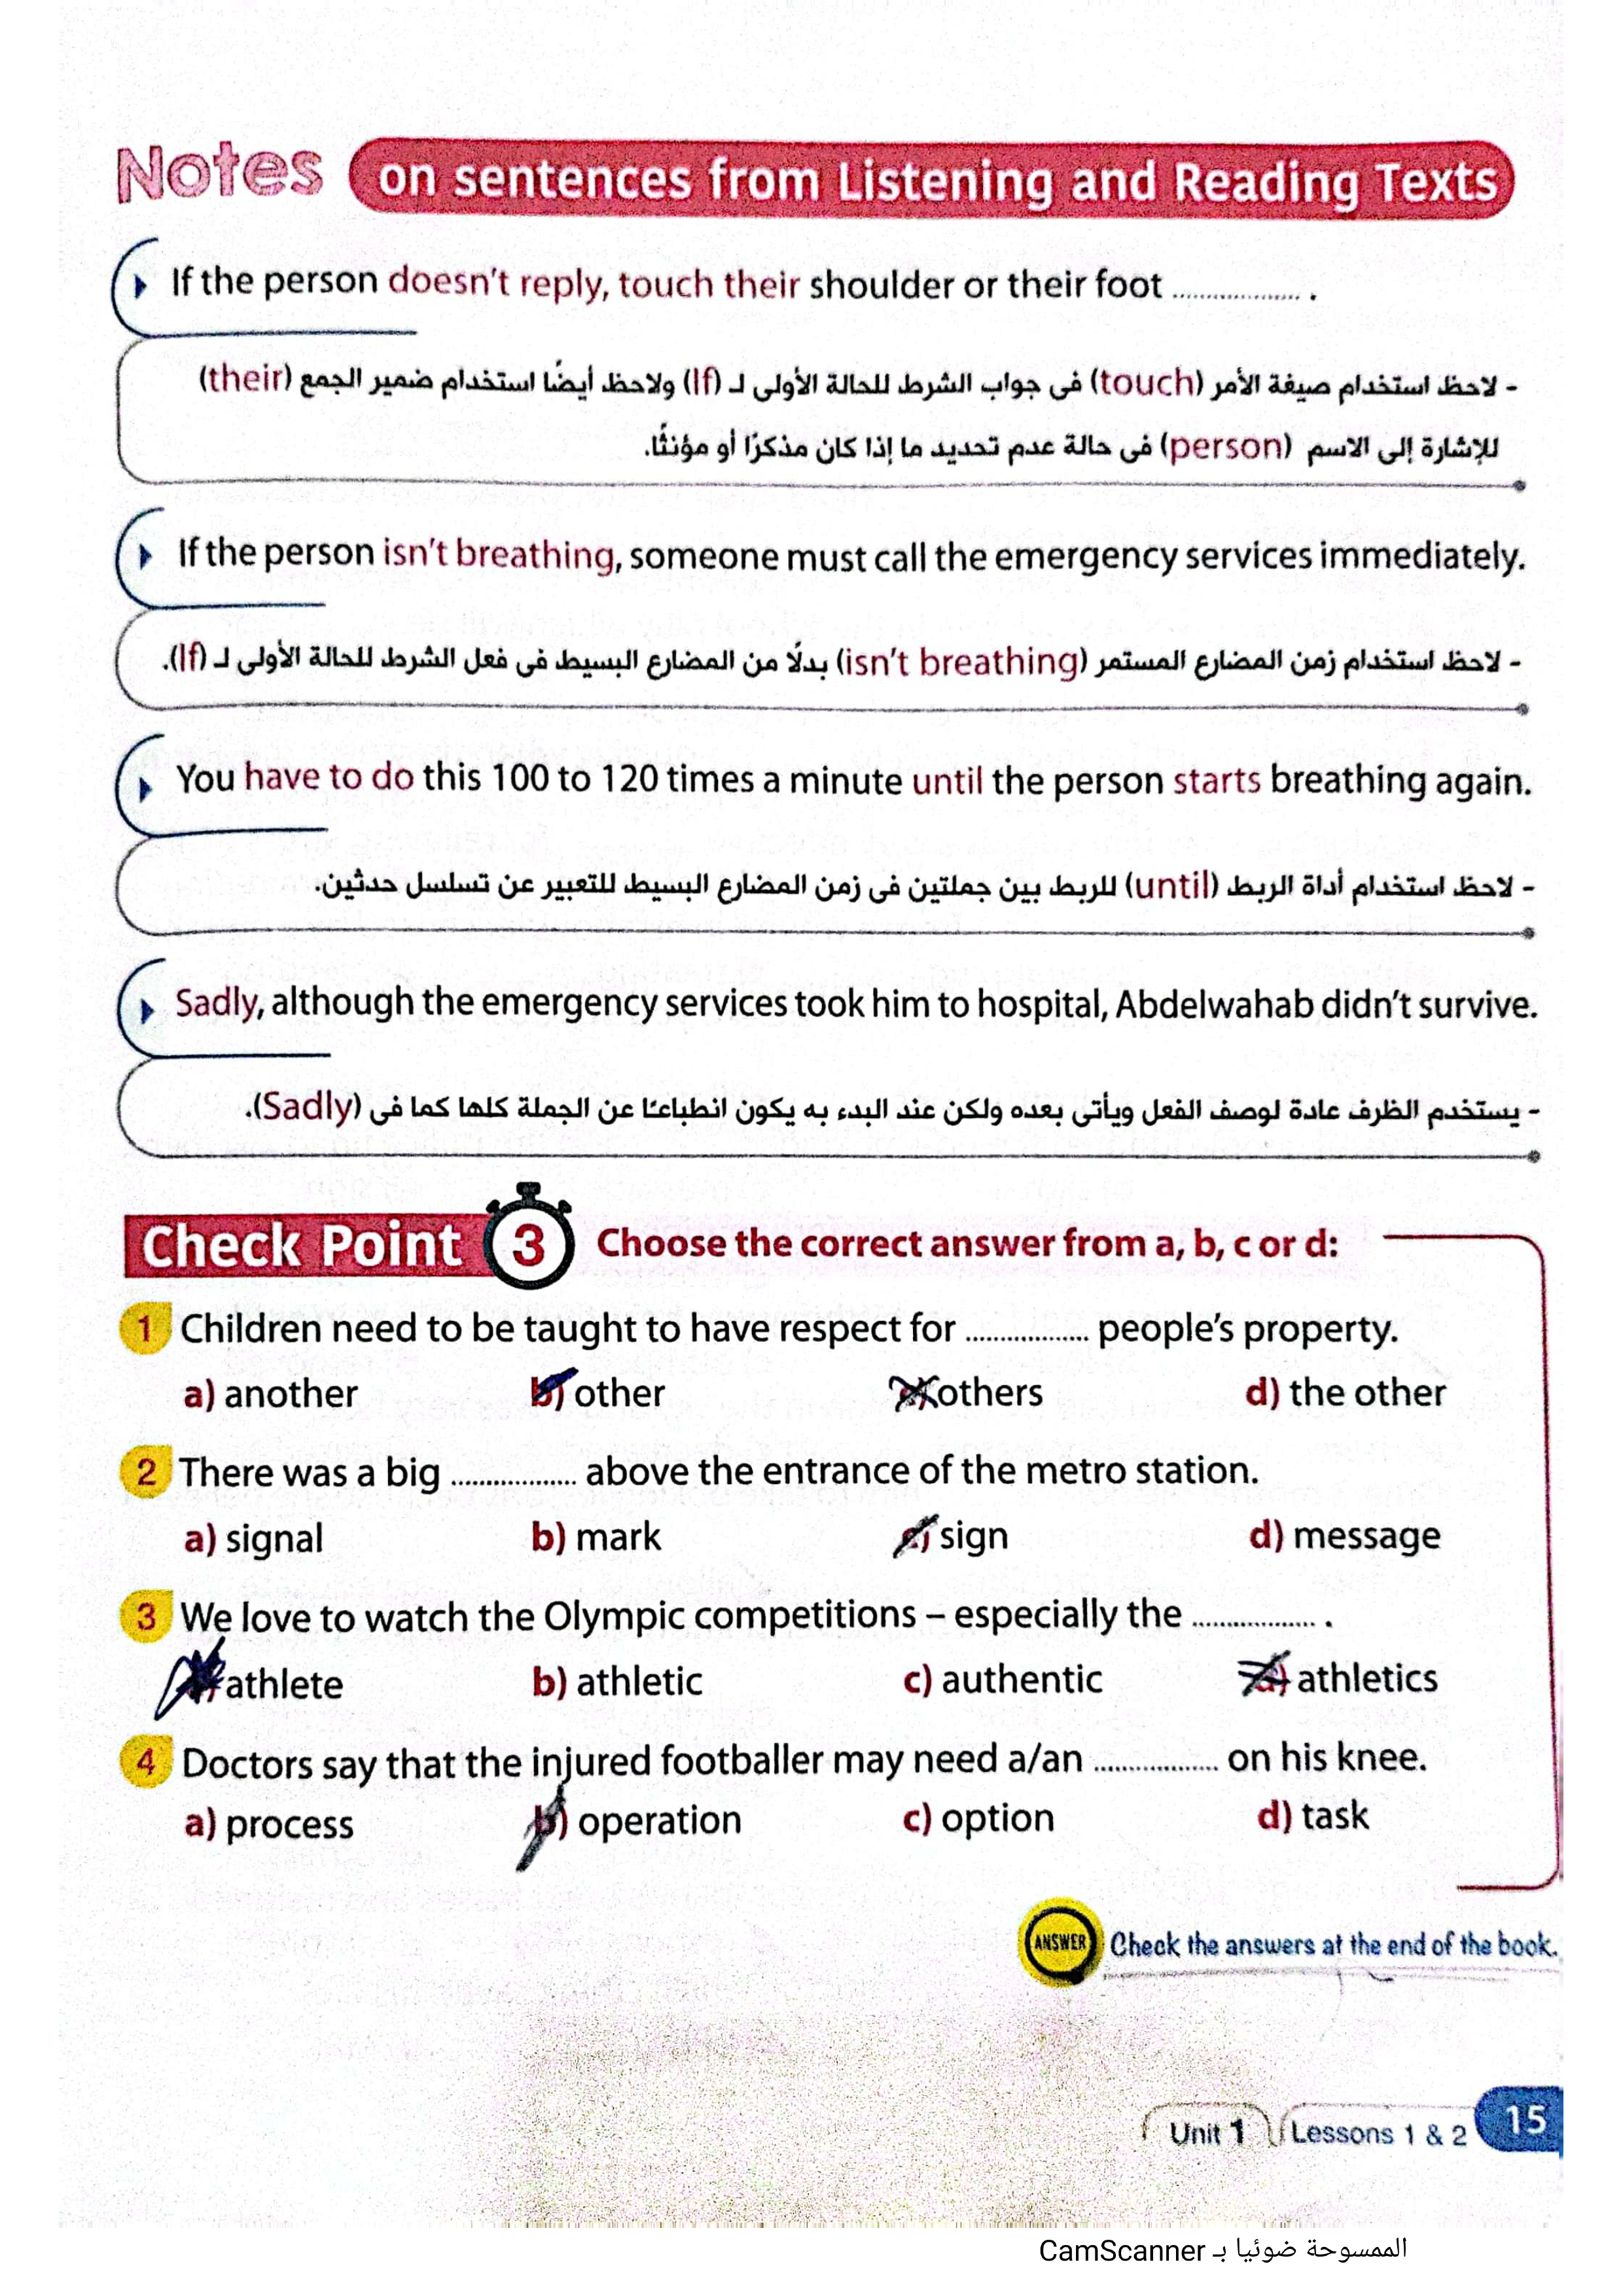 Notes on sentences from Listening and Reading Texts
If the person doesn't reply, touch their shoulder or their foot .................. .
- لاحظ استخدام صيغة الأمر (touch) فى جواب الشرط للحالة الأولى لـ (If) ولاحظ أيضًا استخدام ضمير الجمع (their)
للإشارة إلى الاسم (person) فى حالة عدم تحديد ما إذا كان مذكرًا أو مؤنثًا.
If the person isn't breathing, someone must call the emergency services immediately.
- لاحظ استخدام زمن المضارع المستمر (isn't breathing) بدلًا من المضارع البسيط فى فعل الشرط للحالة الأولى لـ (If).
You have to do this 100 to 120 times a minute until the person starts breathing again.
- لاحظ استخدام أداة الربط (until) للربط بين جملتين فى زمن المضارع البسيط للتعبير عن تسلسل حدثين.
Sadly, although the emergency services took him to hospital, Abdelwahab didn't survive.
- يستخدم الظرف عادة لوصف الفعل ويأتى بعده ولكن عند البدء به يكون انطباعًا عن الجملة كلها كما فى (Sadly).
Check Point 3 Choose the correct answer from a, b, c or d:
1 Children need to be taught to have respect for .................. people's property.
a) another b) other c) others d) the other
2 There was a big .................. above the entrance of the metro station.
a) signal b) mark c) sign d) message
3 We love to watch the Olympic competitions – especially the .................. .
a) athlete b) athletic c) authentic d) athletics
4 Doctors say that the injured footballer may need a/an .................. on his knee.
a) process b) operation c) option d) task
ANSWER Check the answers at the end of the book.
Unit 1 Lessons 1 & 2 15
الممسوحة ضوئيا بـ CamScanner